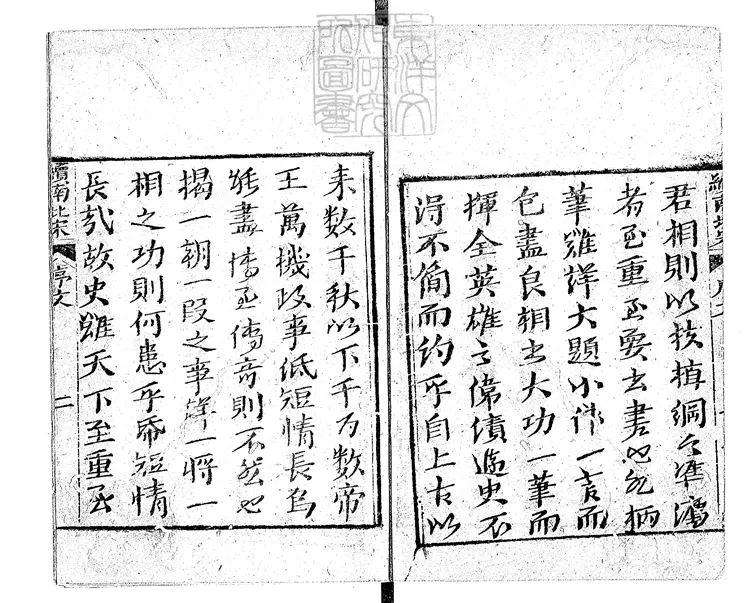 君相則以扶植綱
者至重至要玄書也
筆雖詳大題小作一言而
包盡良相之大功一筆而
揮全英雄之偉績
得不簡而約乎自上古以
來数千秋以下千万数帝
王萬機政事低短情長
能盡情至傳奇則不然也
揭一朝一段之事詳一將一
相之功則何患乎帋短情
長哉故史雖天下至重至
續南北宋
序文
二
東洋文
化研究
所圖書